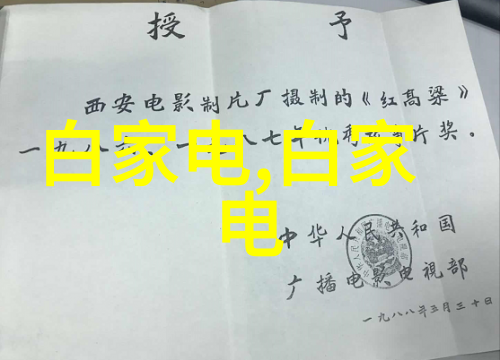 授予
西安电影制片厂摄制的《红高粱》
一九八六、一九八七年优秀故事片奖。
白家电,白家
电
中华人民共和国
广播电影电视部
一九八八年三月三十日